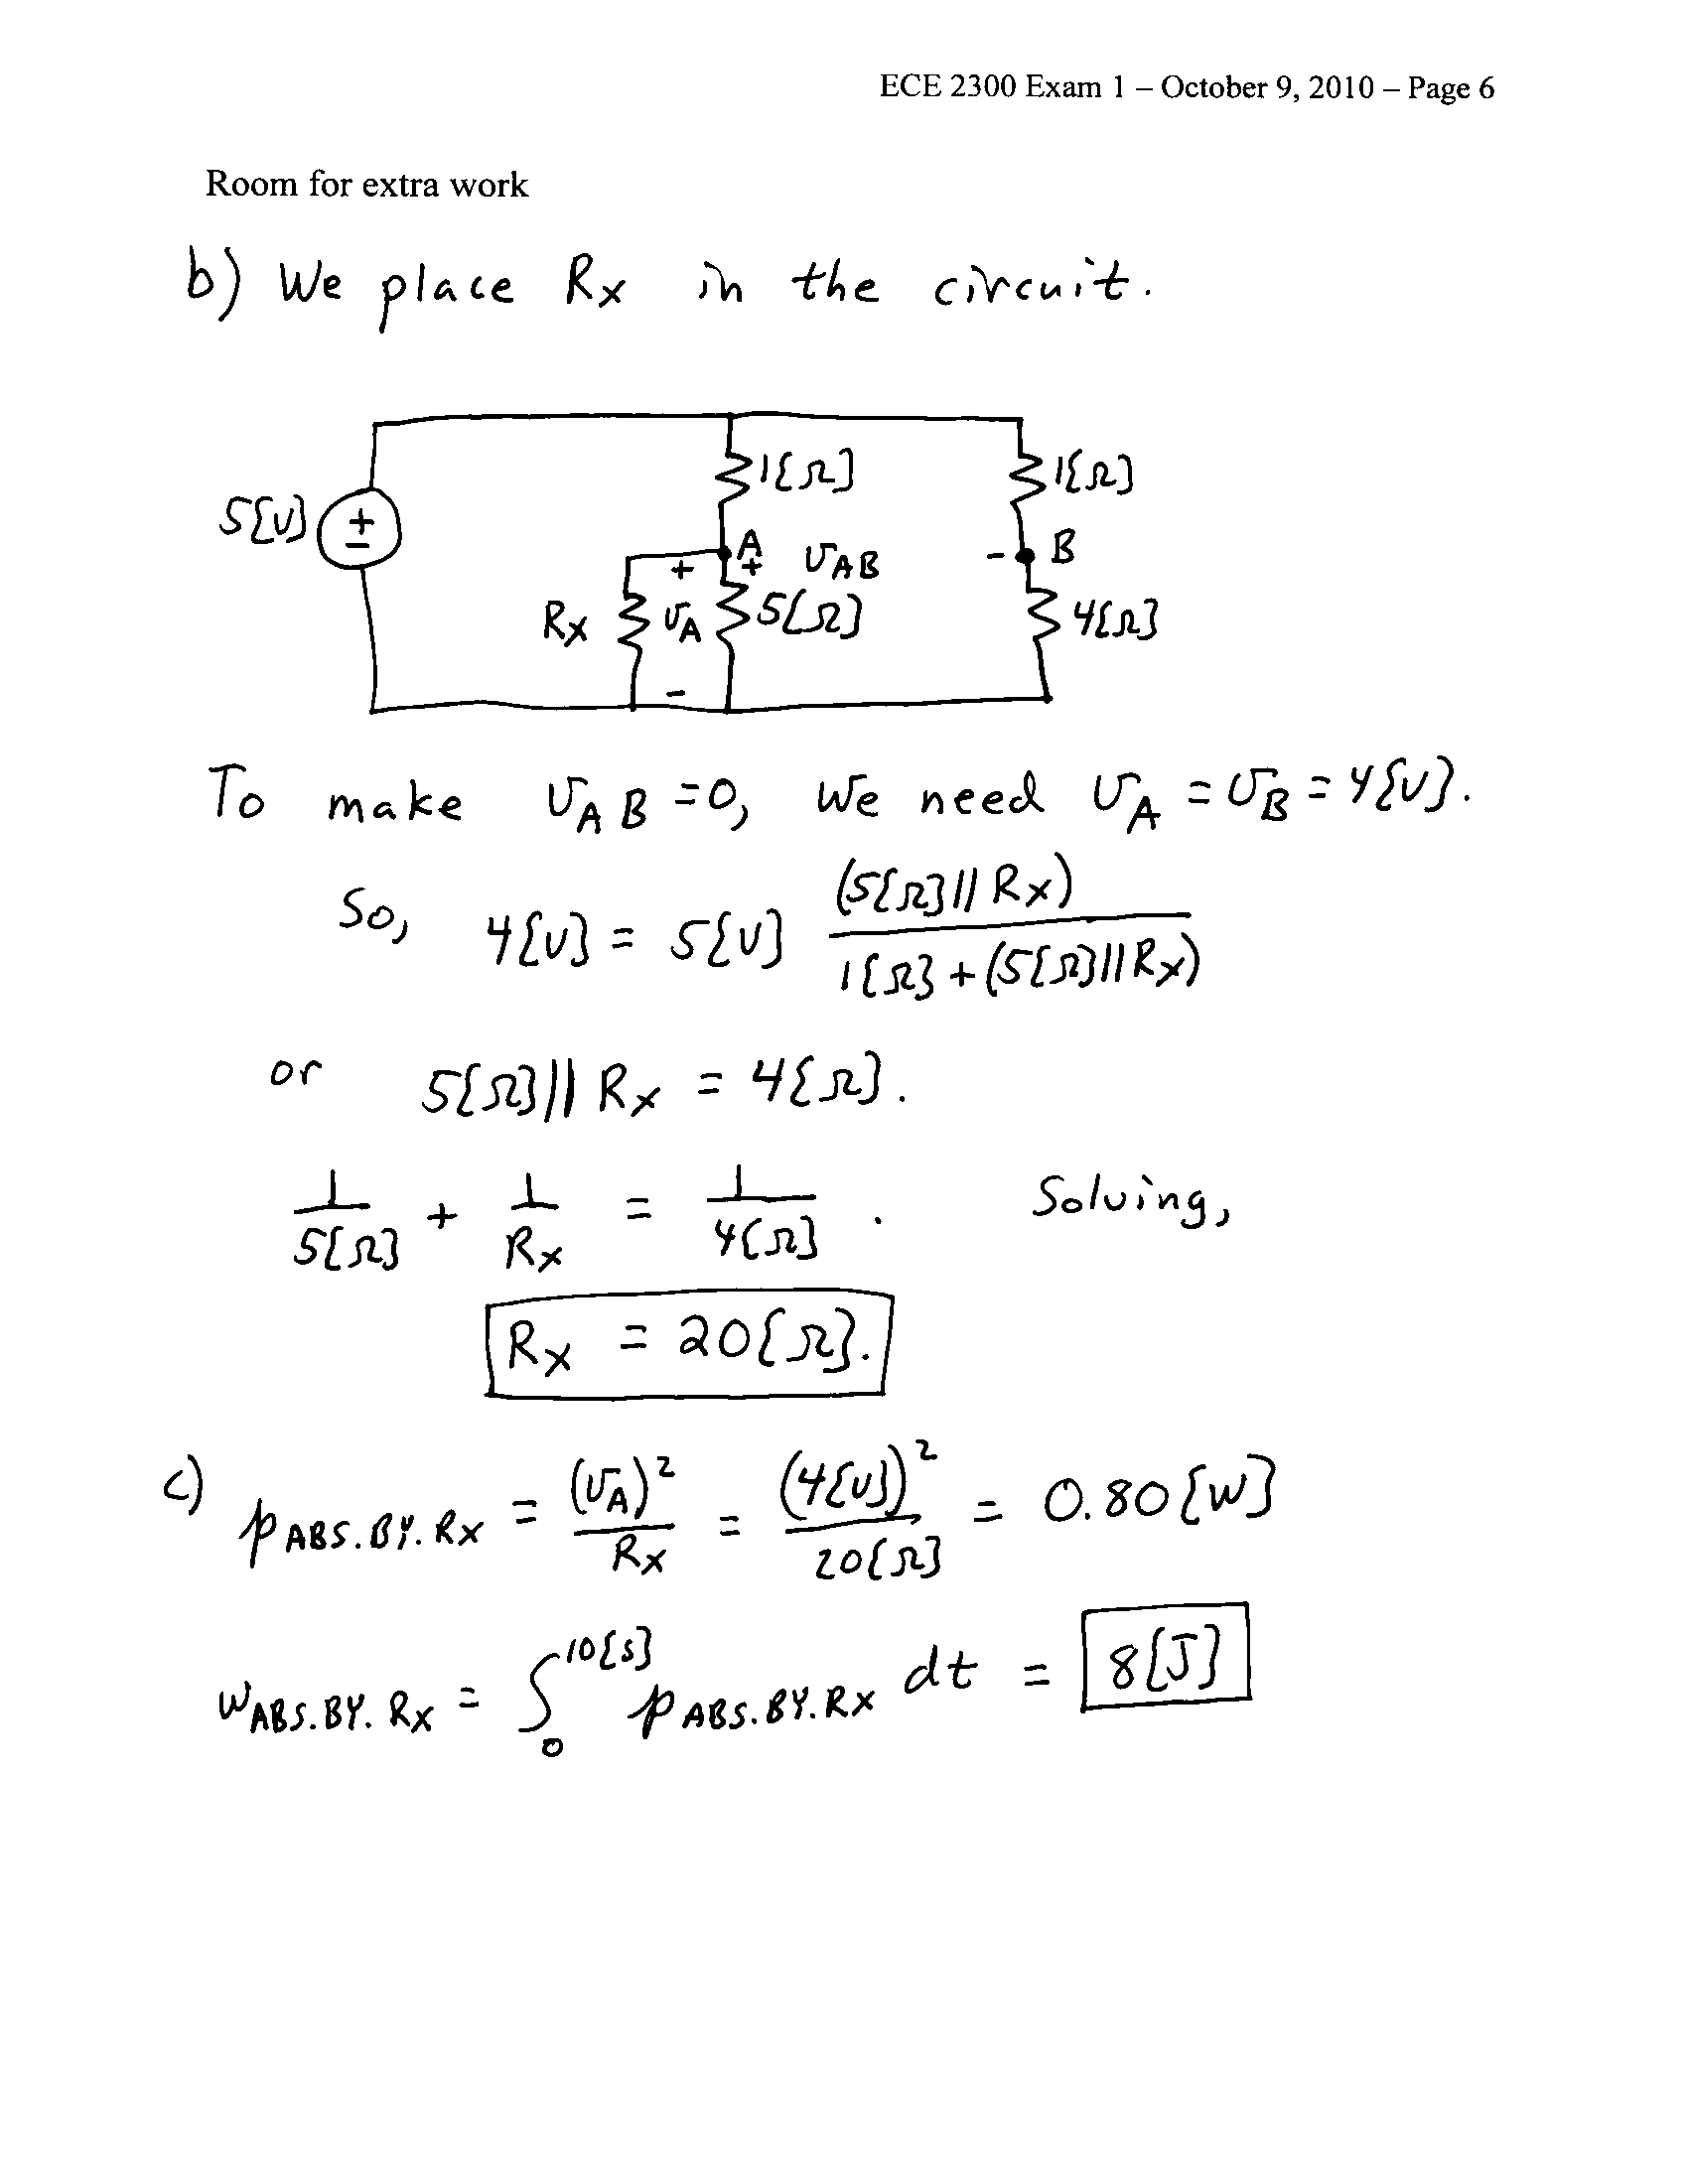 ECE 2300 Exam 1 – October 9, 2010 – Page 6
Room for extra work
b) We place Rx in the circuit.
1[Ω] 1[Ω]
5[V] + −
A + vAB − B
Rx + vA − 5[Ω] 4[Ω]
To make vAB = 0, we need vA = vB = 4[V].
So, 4[V] = 5[V] (5[Ω] || Rx) / (1[Ω] + (5[Ω] || Rx))
or 5[Ω] || Rx = 4[Ω].
1/5[Ω] + 1/Rx = 1/4[Ω] . Solving,
Rx = 20[Ω].
c) pABS.BY.Rx = (vA)²/Rx = (4[V])²/20[Ω] = 0.80[W]
wABS.BY.Rx = ∫₀^10[s] pABS.BY.Rx dt = 8[J]